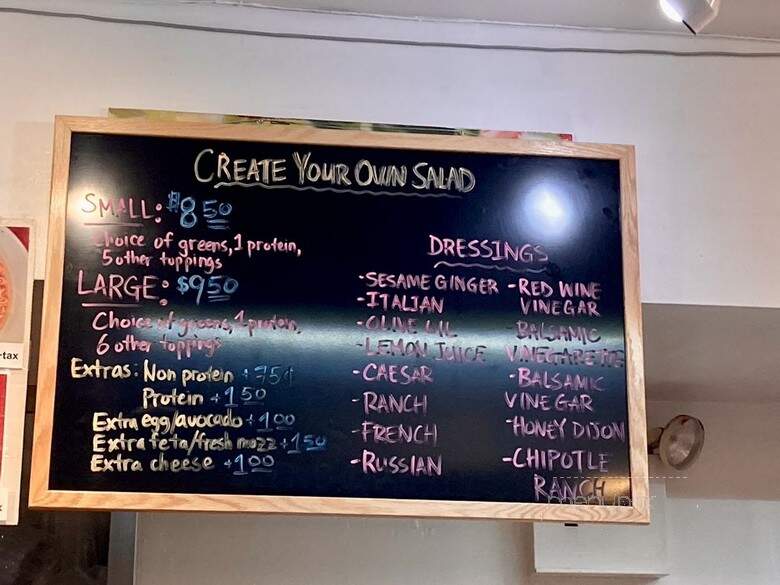 CREATE YOUR OWN SALAD
SMALL: $8.50
Choice of greens, 1 protein,
5 other toppings
LARGE: $9.50
Choice of greens, 1 protein,
6 other toppings
Extras: Non protein + .75¢
Protein + 1.50
Extra egg/avocado + 1.00
Extra feta/fresh mozz + 1.50
Extra cheese + 1.00
DRESSINGS
-SESAME GINGER
-ITALIAN
-OLIVE OIL
-LEMON JUICE
-CAESAR
-RANCH
-FRENCH
-RUSSIAN
-RED WINE
VINEGAR
-BALSAMIC
VINEGARETTE
-BALSAMIC
VINEGAR
-HONEY DIJON
-CHIPOTLE
RANCH
-tax